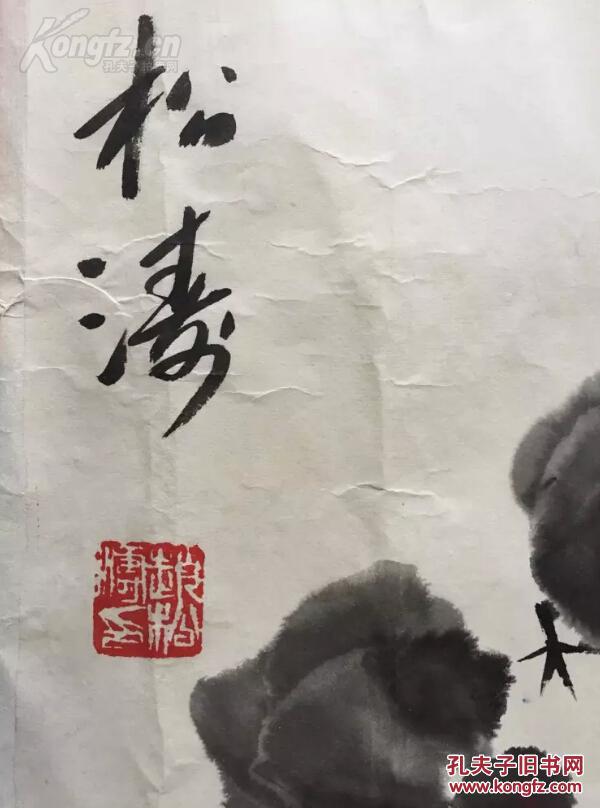 Kongfz.cn
孔夫子旧书网
松
涛
赵松
涛印
孔夫子旧书网
www.kongfz.com